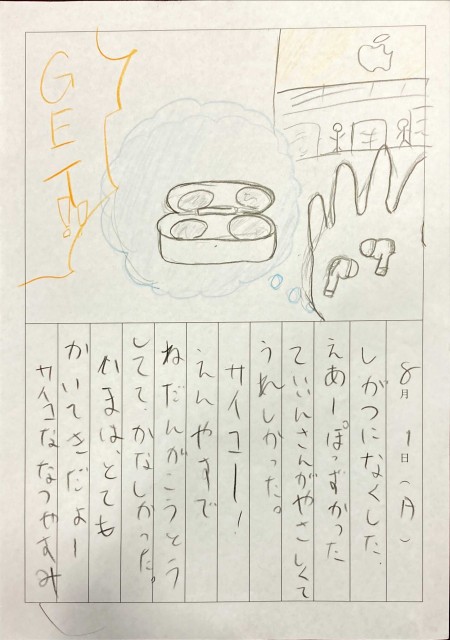 GET!!
8月1日(月)
しがつになくした、
えあーぽっずかった
ていいんさんがやさしくて
うれしかった。
サイコー!
えんやすで
ねだんがこうとう
してて、かなしかった。
いまは、とても
かいてきだよー
サイコな なつやすみ